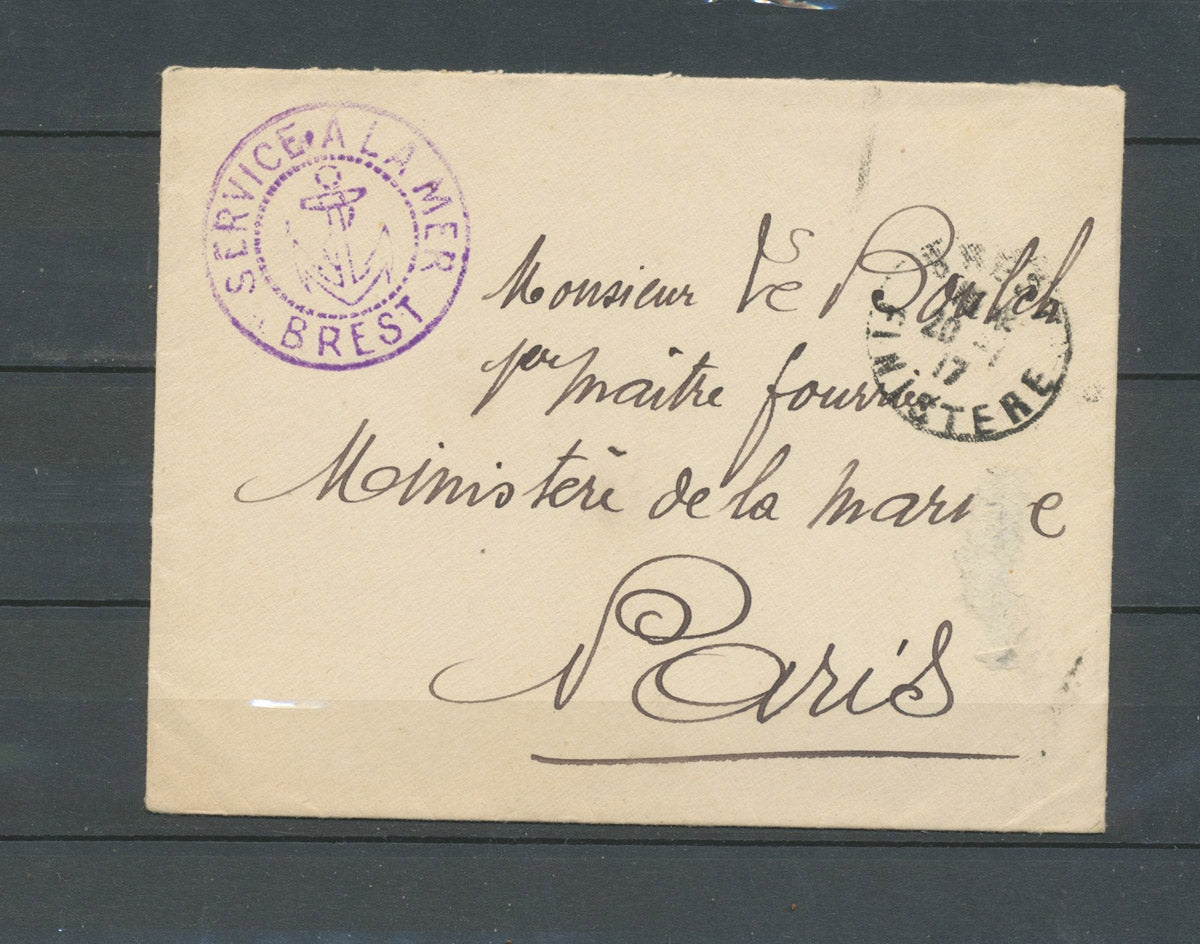 SERVICE A LA MER
BREST
Monsieur Le Boulch
1er maître fourrier
Ministère de la marine
Paris
20
17
FINISTERE